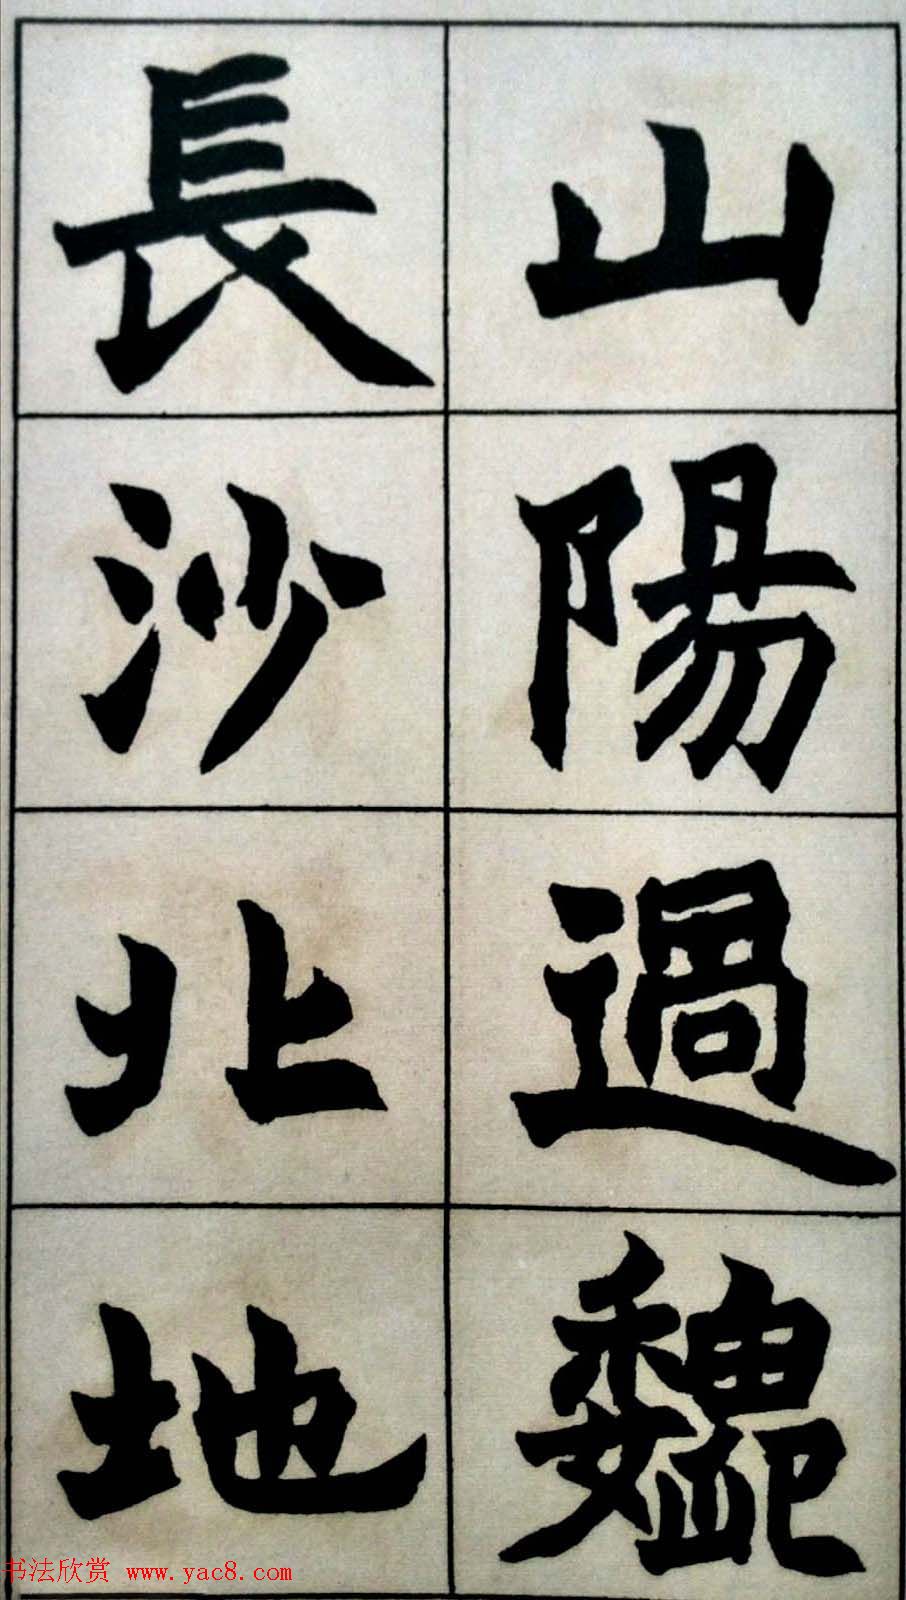 山陽過魏
長沙北地
书法欣赏 www.yac8.com